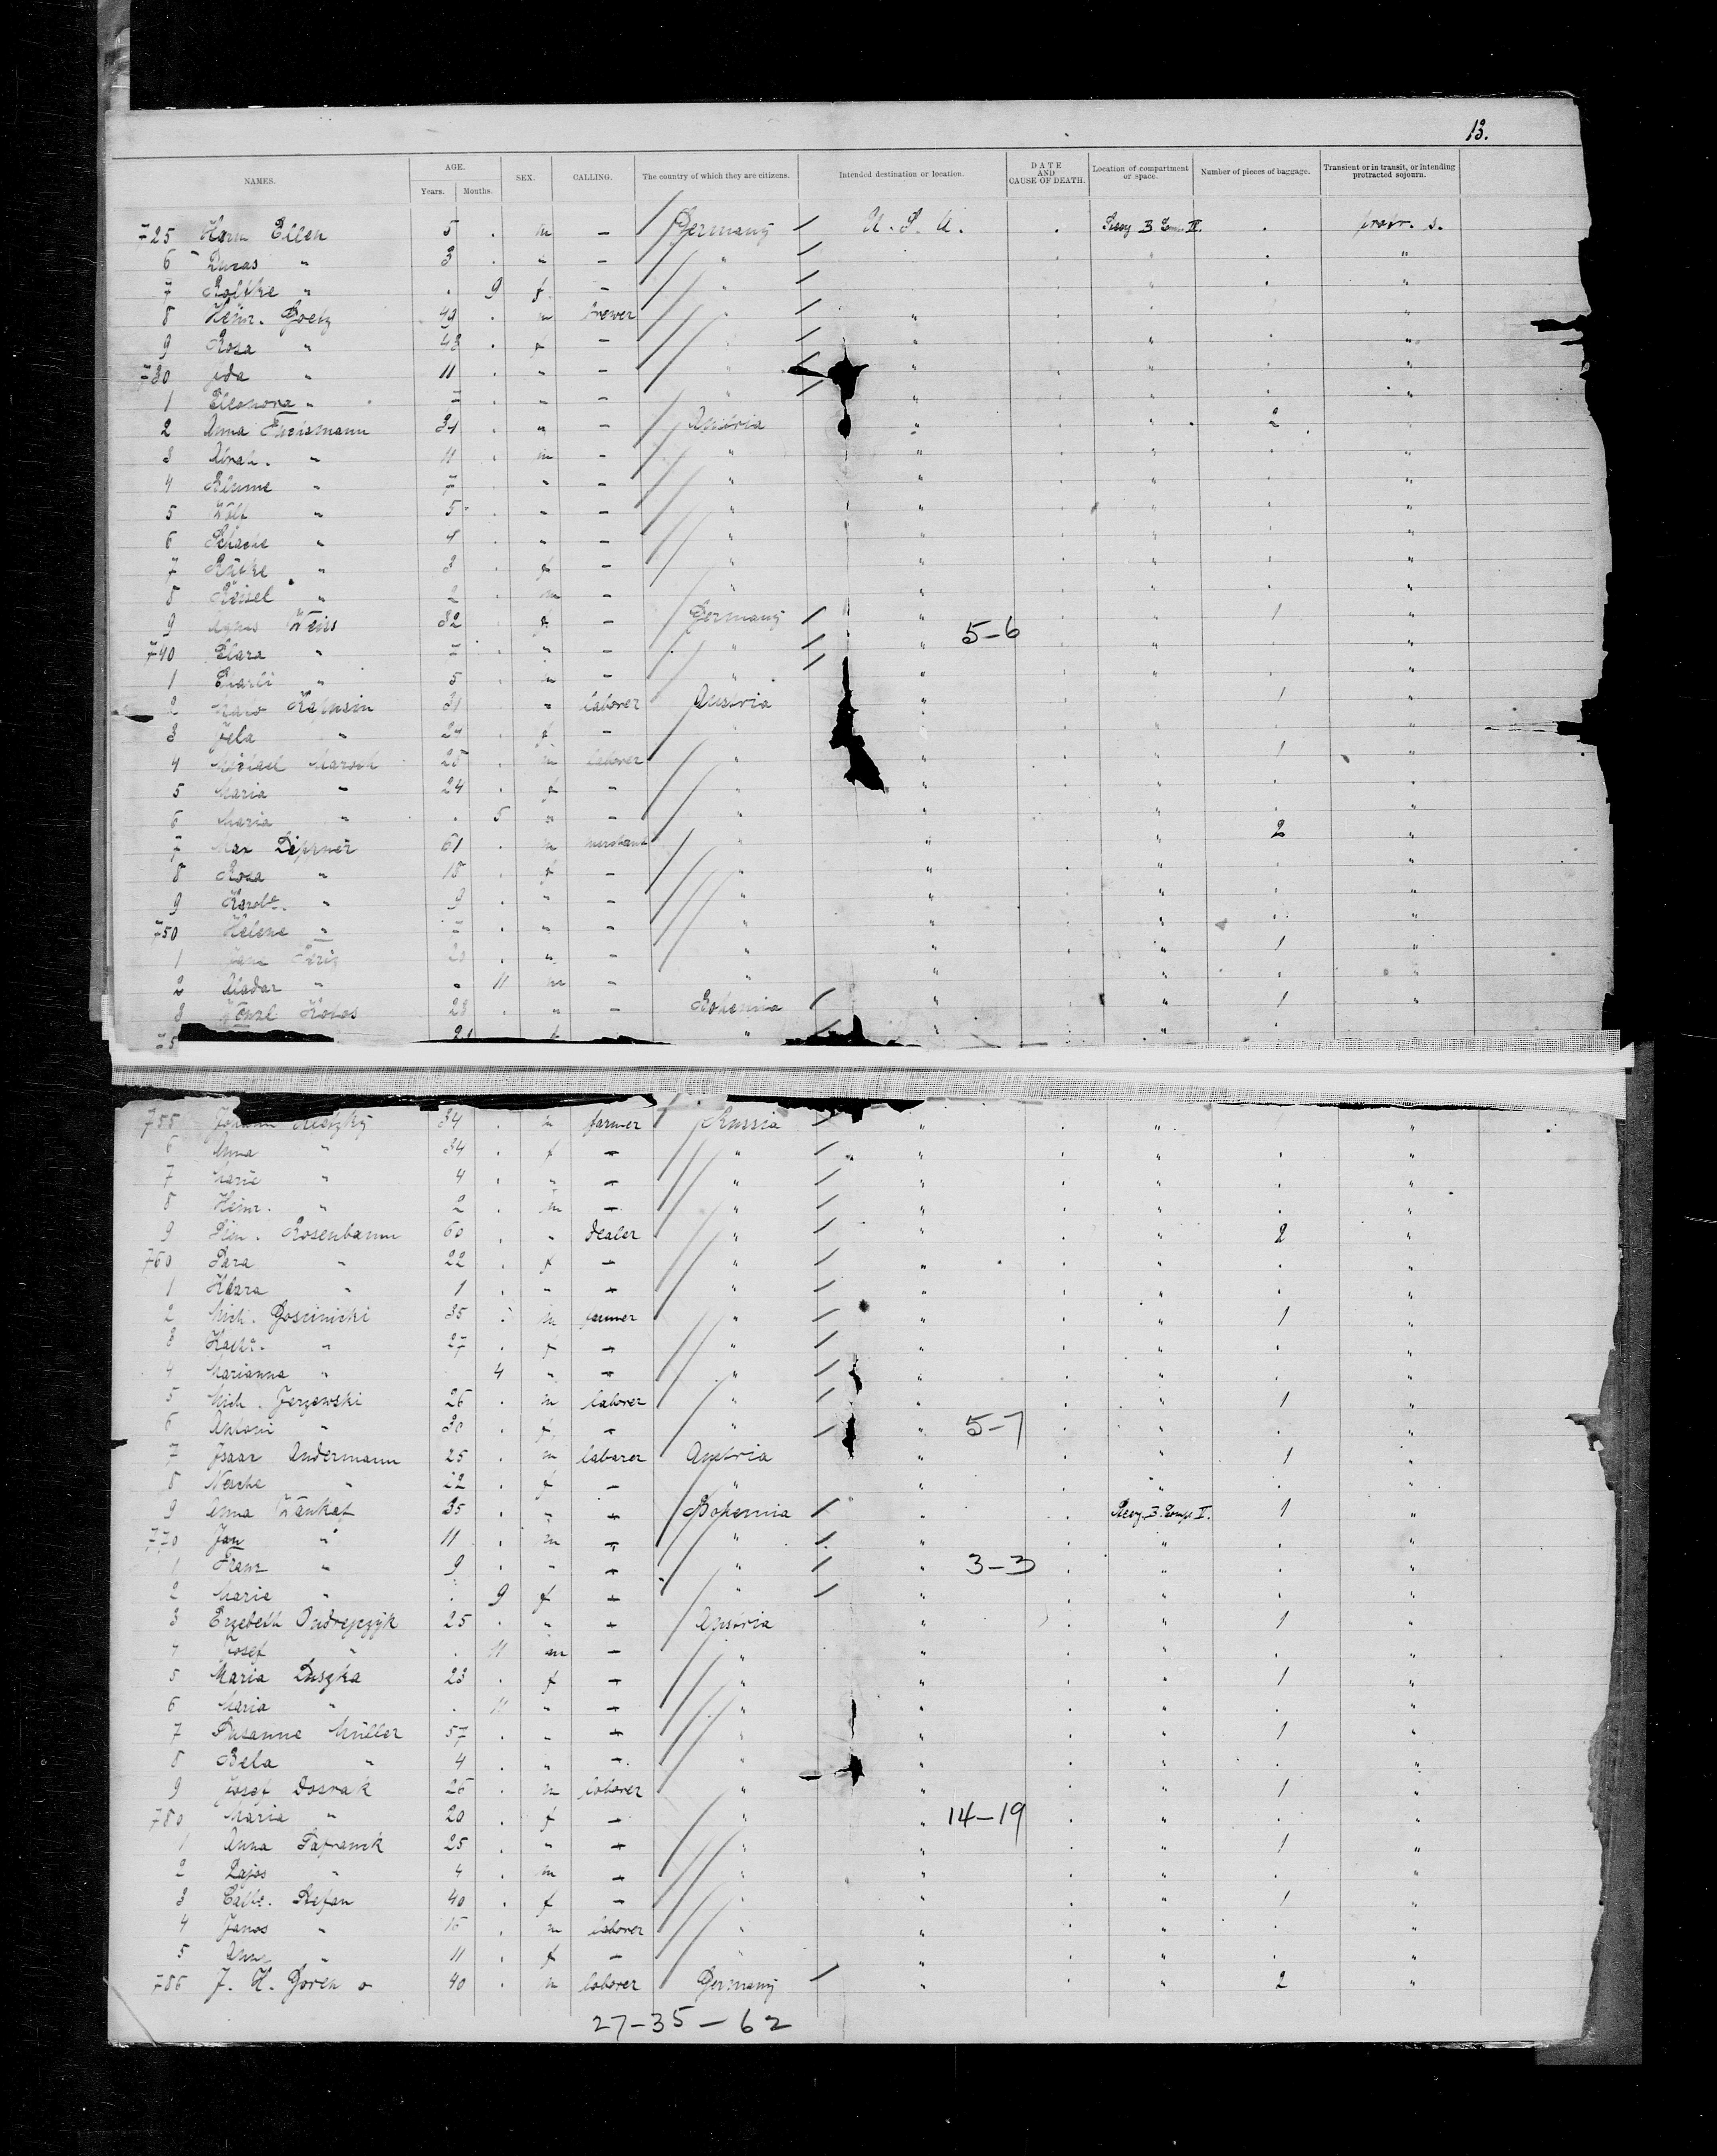 13.
NAMES. AGE. Years. Months. SEX. CALLING. The country of which they are citizens. Intended destination or location. DATE AND CAUSE OF DEATH. Location of compartment or space. Number of pieces of baggage. Transient or in transit, or intending protracted sojourn.
725 Harm Ellen 5 . m — Germany U. S. A. . . protr. s.
6 " 3 . " — " . . "
7 " . 9 f — " . . "
8 Heinr. Goetz . m brewer " " . "
9 Rosa " 43 . f — " " " . "
730 Ida " 11 . " — " " " . "
1 Eleonora " 7 . " — " " " . "
2 Anna 34 . " — Austria " " 2 "
3 Abrah. " 11 . m — " " " . "
4 Blume " 7 . " — " " " . "
5 Wolf " 5 . " — " " " . "
6 " 4 . " — " " " . "
7 " 3 . f — " " " . "
8 Reisel " 2 . m — " " " . "
9 Agnes Weiss 32 . f — Germany " " 1 "
5-6
740 Clara " 7 . " — " " " . "
1 Charli " 5 . m — " " " . "
2 31 . " laborer Austria " " 1 "
3 Jela " 24 . f — " " " . "
4 Michael Marosh 28 . m laborer " " " 1 "
5 Maria " 24 . f — " " " . "
6 Maria " . 5 " — " " " . "
7 Max 61 . m merchant " " " 2 "
8 Rosa " 18 . f — " " " . "
9 " 9 . " — " " " . "
750 Helene " 7 . " — " " " . "
1 20 . " — " " " 1 "
2 Aladar " . 11 m — " " " . "
3 23 . " — Bohemia " " 1 "
21 f "
755 Johann 34 . m farmer Russia " " "
6 Anna " 34 . f — " " " . "
7 Marie " 4 . " — " " " . "
8 Heinr. " 2 . m — " " " . "
9 Sim. Rosenbaum 60 . " dealer " " " 2 "
760 Sara " 22 . f — " " " . "
1 Klara " 1 . " — " " " . "
2 Mich. Goscinicki 35 . m farmer " " " 1 "
3 Kath. " 27 . f — " " " . "
4 Marianna " 4 " — " " " . "
5 Mich. Jerzewski 26 . m laborer " " " 1 "
6 Antoni " 30 . f — " " " . "
5-7
7 Isaac Andermann 25 . m laborer Austria " " 1 "
8 Nesche " 22 . f — " " " . "
9 Anna Wankat 35 . " — Bohemia . 1 "
770 Jan " 11 . m — " " " . "
1 Franz " 9 . " — " " " . "
3-3
2 Marie " . 9 f — " " " . "
3 Erzebeth Ondrejczyk 25 . " — Austria " " 1 "
4 Josef " . 11 m — " " " . "
5 Maria Duszka 23 . f — " " " 1 "
6 Maria " . 11 " — " " " . "
7 Susanne Müller 57 . " — " " " 1 "
8 Bela " 4 . " — " " " . "
9 Josef Dosrak 26 . m laborer " " " 1 "
780 Maria " 20 . f — " " " . "
14-19
1 Anna 25 . " — " " " 1 "
2 Lajos " 4 . m — " " " . "
3 Cath. Stefan 40 . f — " " " 1 "
4 Janos " 16 . m laborer " " " . "
5 Anna " 11 . f — " " " . "
786 J. H. 40 . m laborer Germany " " 2 "
27-35-62